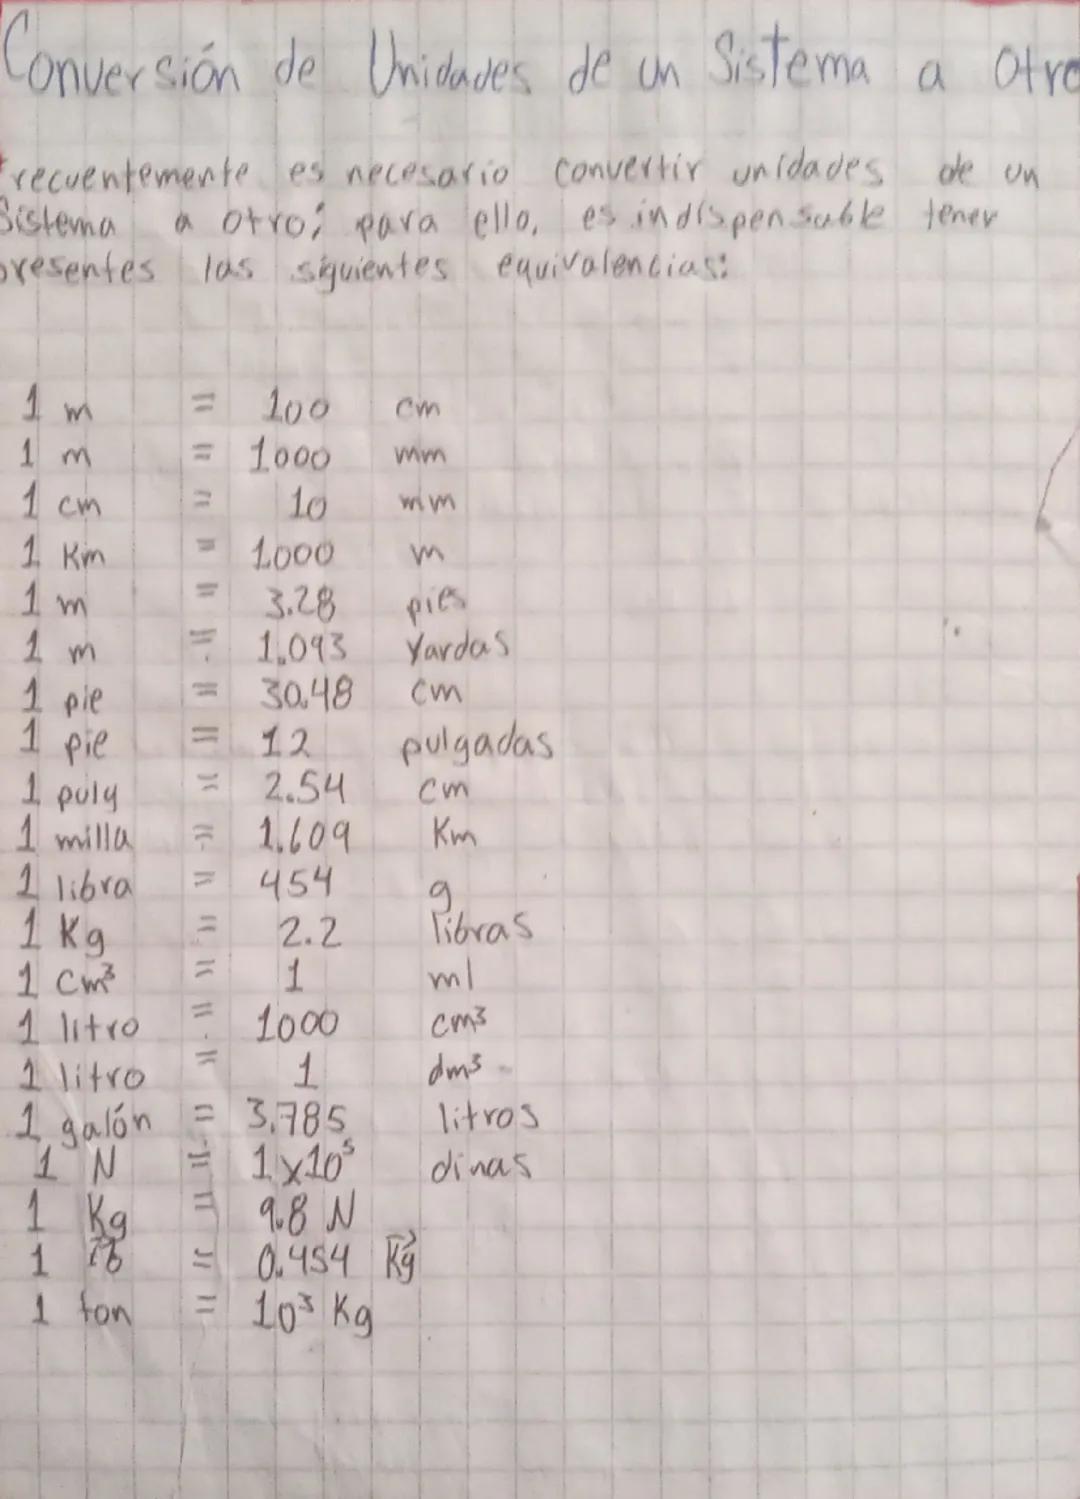 Conversión de Unidades de un Sistema a Otro
Frecuentemente es necesario convertir unidades de un
Sistema a otro; para ello, es indispensable tener
presentes las siguientes equivalencias:
1 m = 100 cm
1 m = 1000 mm
1 cm = 10 mm
1 Km = 1000 m
1 m = 3.28 pies
1 m = 1.093 Yardas
1 pie = 30.48 cm
1 pie = 12 pulgadas
1 pulg = 2.54 cm
1 milla = 1.609 Km
1 libra = 454 g
1 Kg = 2.2 libras
1 Cm³ = 1 ml
1 litro = 1000 cm³
1 litro = 1 dm³
1 galón = 3.785 litros
1 N = 1x10⁵ dinas
1 Kg = 9.8 N
1 lb = 0.454 Kg
1 ton = 10³ Kg